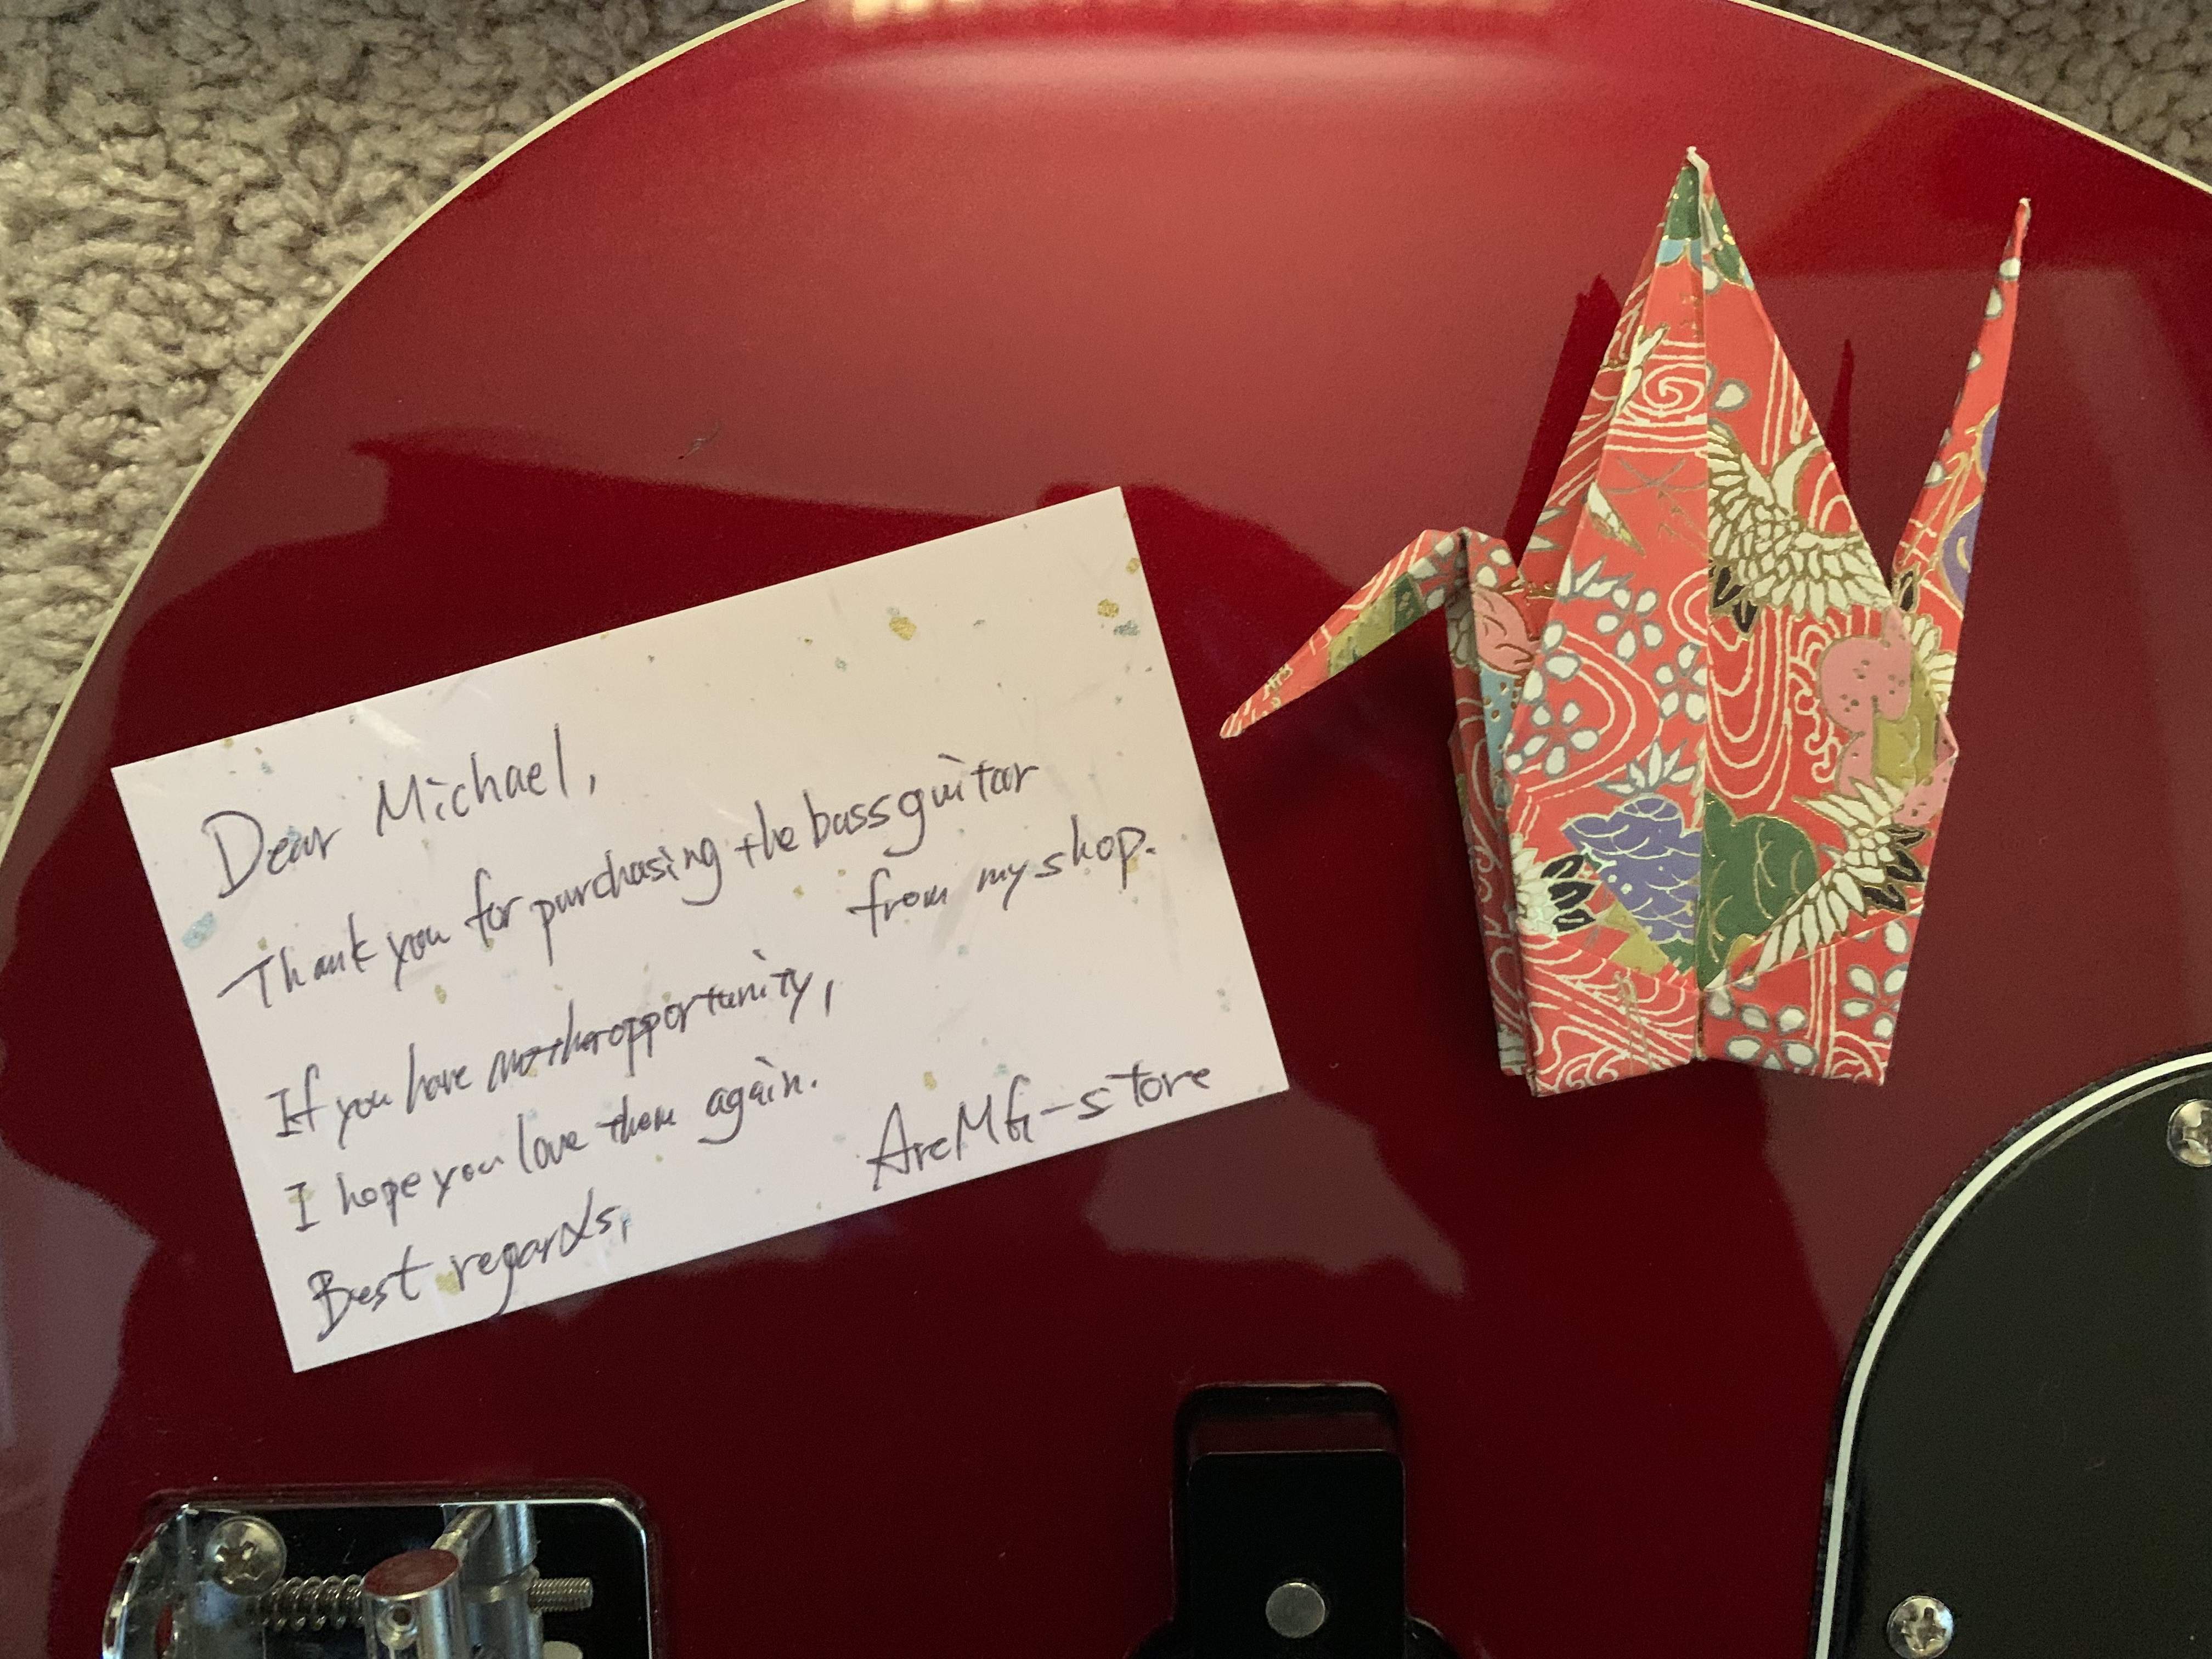 Dear Michael,
Thank you for purchasing the bass guitar
from my shop.
If you have another opportunity,
I hope you love them again.
Best regards,
ArcMG-store